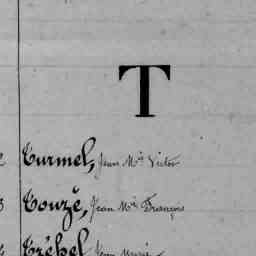 T
Turmel, Jean Mie Victor
Touzé, Jean Mie François
Trébel, Jean Marie